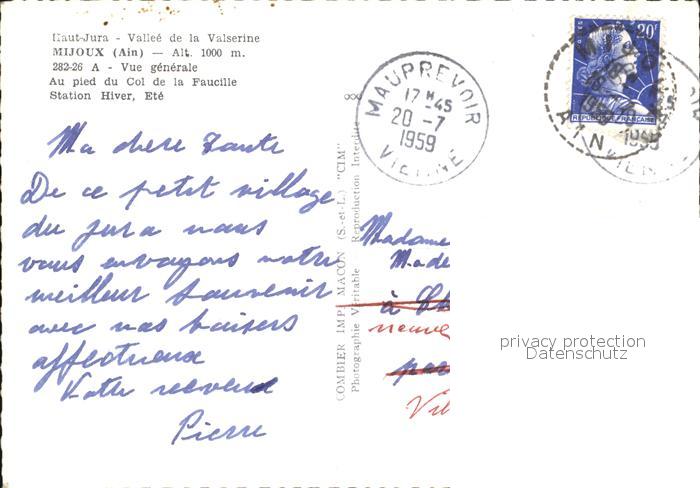 Haut-Jura - Valleé de la Valserine
MIJOUX (Ain) — Alt. 1000 m.
282-26 A - Vue générale
Au pied du Col de la Faucille
Station Hiver, Eté
Ma chere Tante
De ce petit village
du jura nous
vous envoyons notre
meilleur souvenir
avec nos baisers
affectueux
Votre neveu
Pierre
COMBIER IMP. MACON (S.-et-L.) "CIM"
Photographie Véritable Reproduction Interdite
MAUPREVOIR
17 H 45
20 - 7
1959
VIENNE
20F
REPUBLIQUE FRANCAISE
AIN
1959
Madame
Made
à
par
privacy protection
Datenschutz